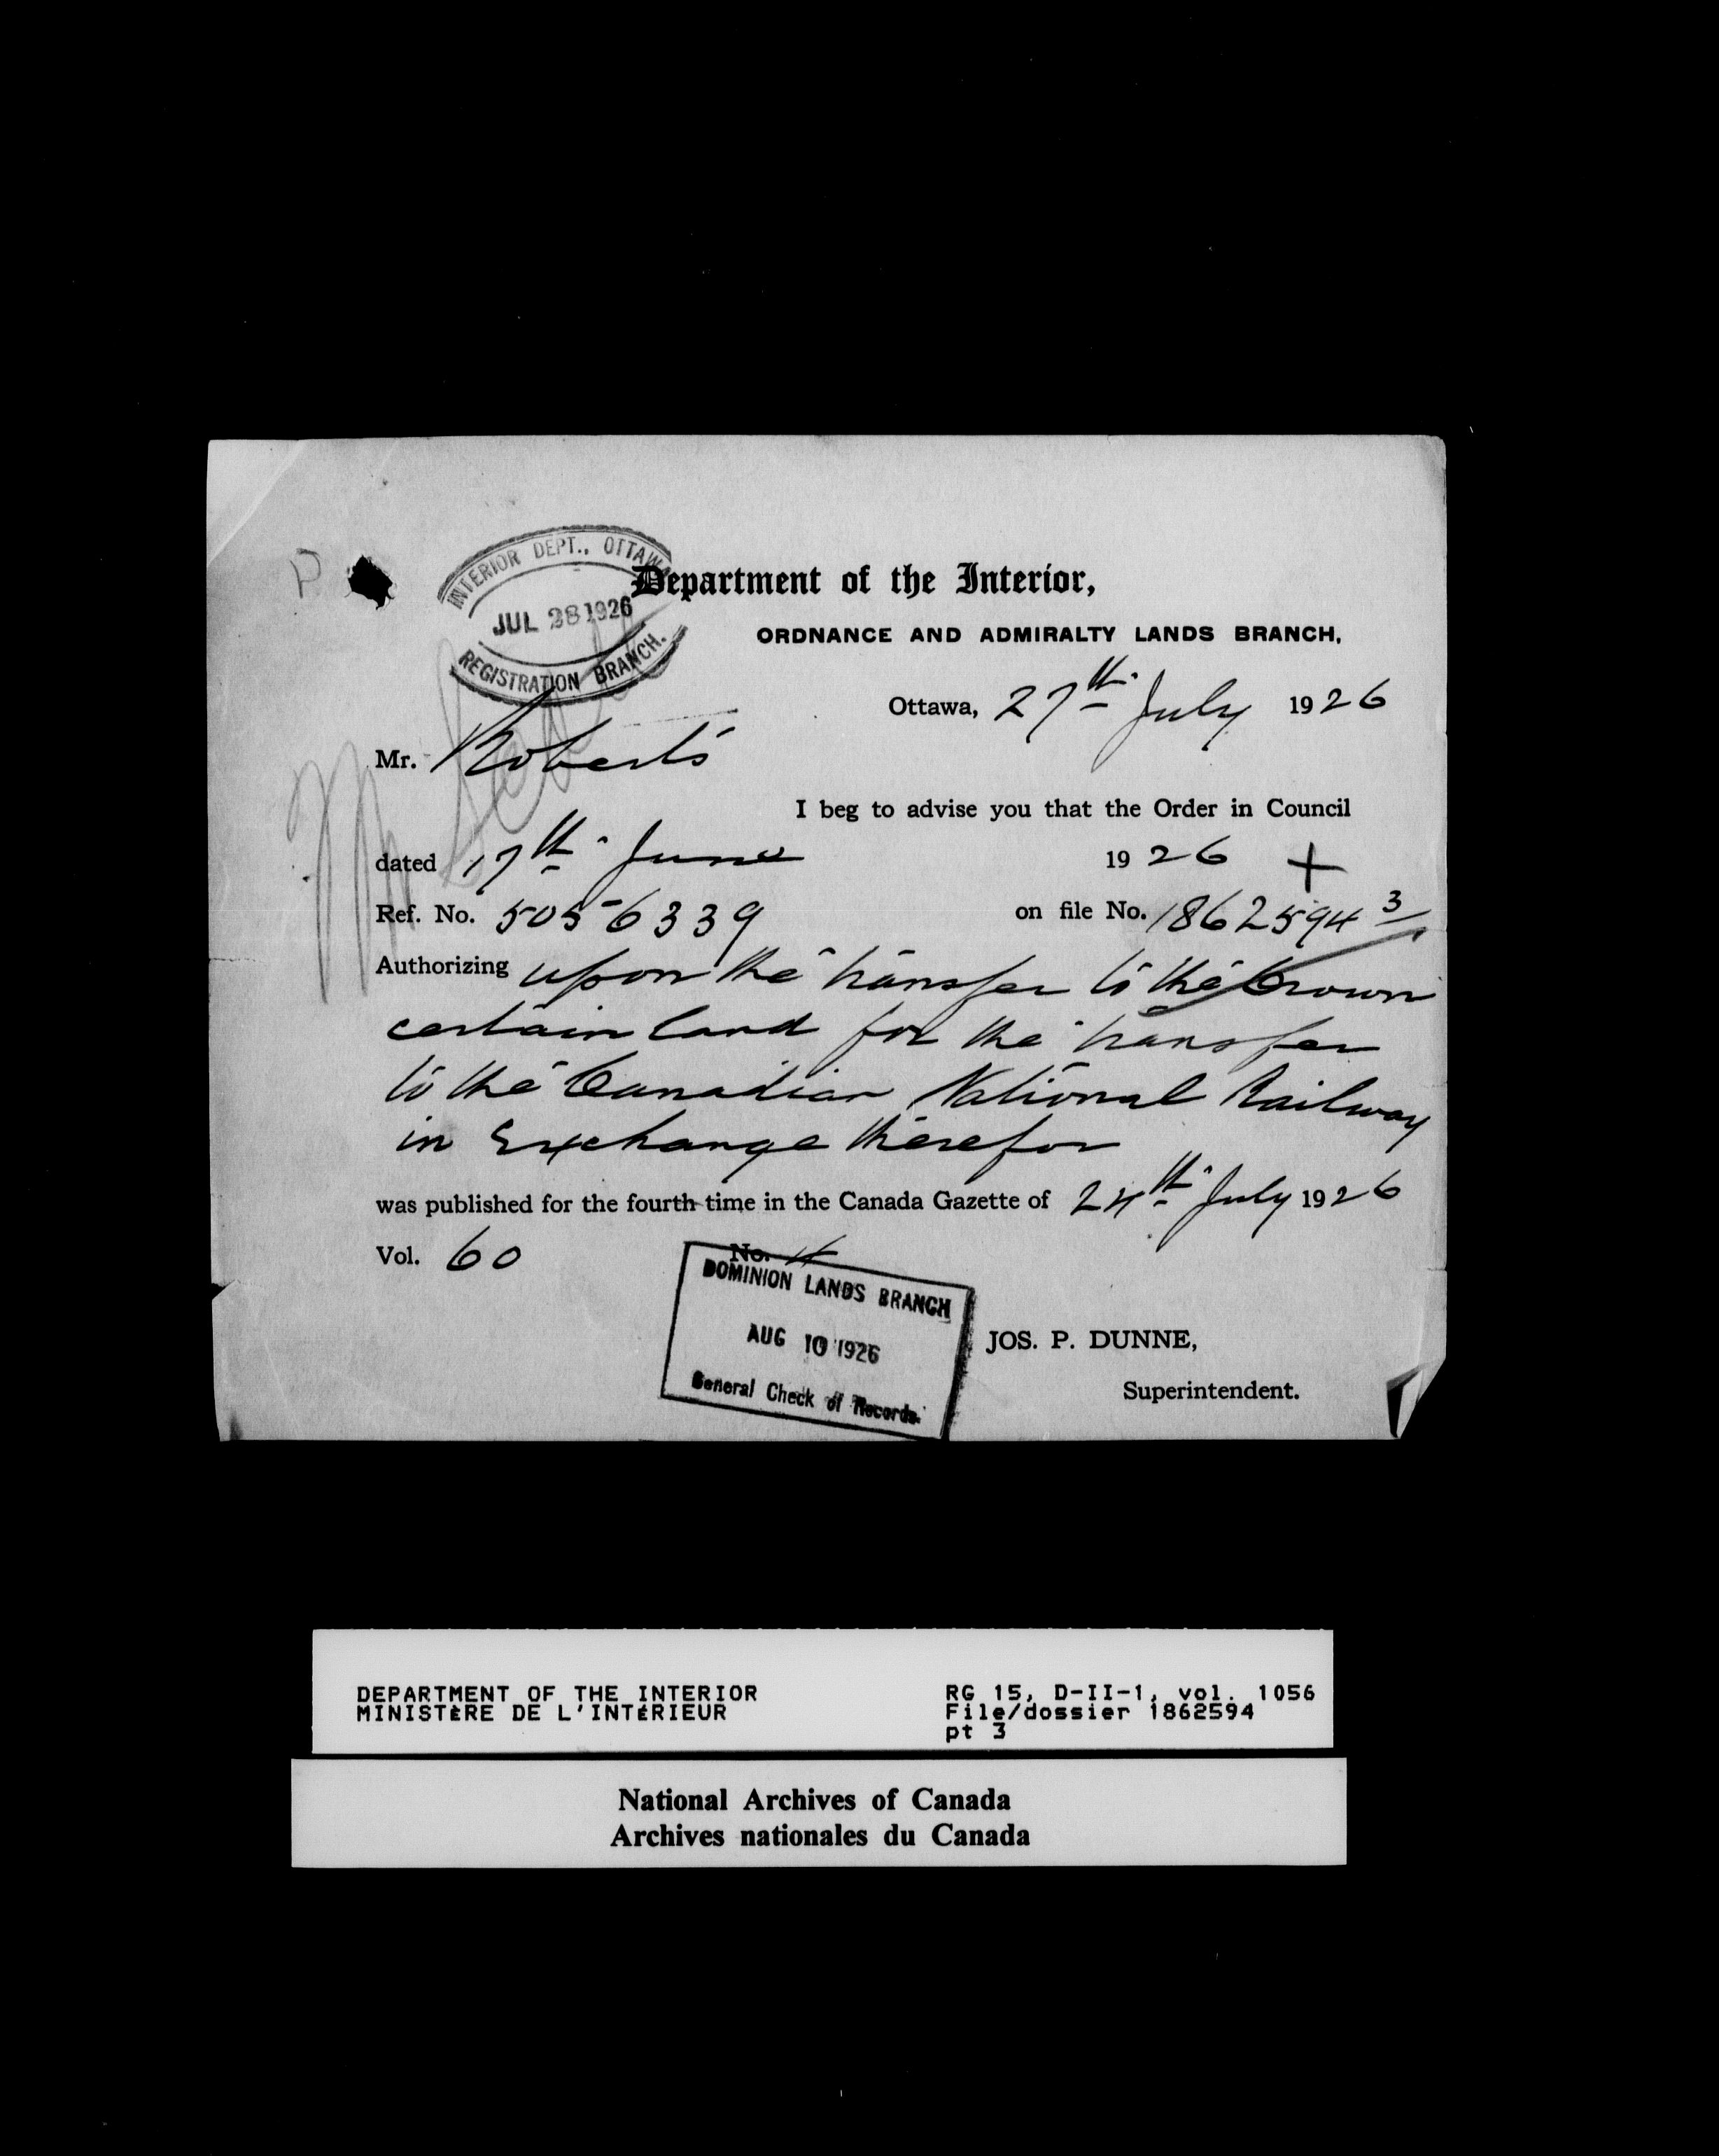 INTERIOR DEPT., OTTAWA
JUL 28 1926
REGISTRATION BRANCH.
Department of the Interior,
ORDNANCE AND ADMIRALTY LANDS BRANCH,
Ottawa, 27th July 1926
Mr. Roberts
I beg to advise you that the Order in Council
dated 17th June 1926 +
Ref. No. 5056339 on file No. 1862594 3
Authorizing upon the transfer to the Crown
certain land for the transfer
to the Canadian National Railway
in Exchange therefor
was published for the fourth time in the Canada Gazette of 24th July 1926
Vol. 60 No. 4
DOMINION LANDS BRANCH
AUG 10 1926
General Check of Records.
JOS. P. DUNNE,
Superintendent.
DEPARTMENT OF THE INTERIOR RG 15, D-II-1, vol. 1056
MINISTÈRE DE L'INTÉRIEUR File/dossier 1862594
pt 3
National Archives of Canada
Archives nationales du Canada